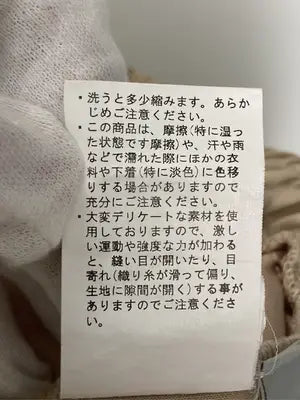 ・洗うと多少縮みます。あらか
じめご注意ください。
・この商品は、摩擦(特に湿っ
た状態です摩擦)や、汗や雨
などで濡れた際にほかの衣
料や下着(特に淡色)に色移
りする場合がありますので
充分にご注意ください。
・大変デリケートな素材を使
用しておりますので、激し
い運動や強度な力が加わる
と、縫い目が開いたり、目
寄れ(織り糸が滑って偏り、
生地に隙間が開く)する事が
ありますのでご注意くださ
い。